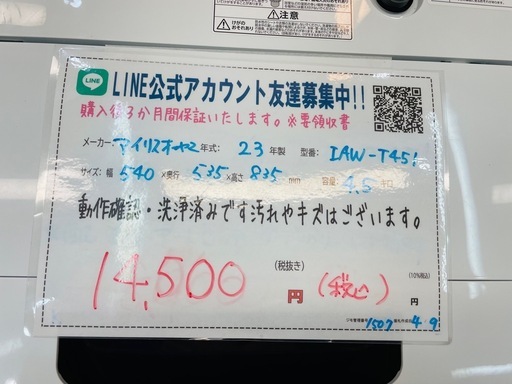 注意
LINE
LINE公式アカウント友達募集中!!
購入後3か月間保証いたします。※要領収書
メーカー:アイリスオーヤマ 年式: 23年製 型番: IAW-T451
サイズ:幅 540 ×奥行 535 ×高さ 835 mm 容量: 4.5
動作確認・洗浄済みです汚れやキズはございます。
14,500 (税抜き) 円 (税込) (10%税込) 円
1507 4.9